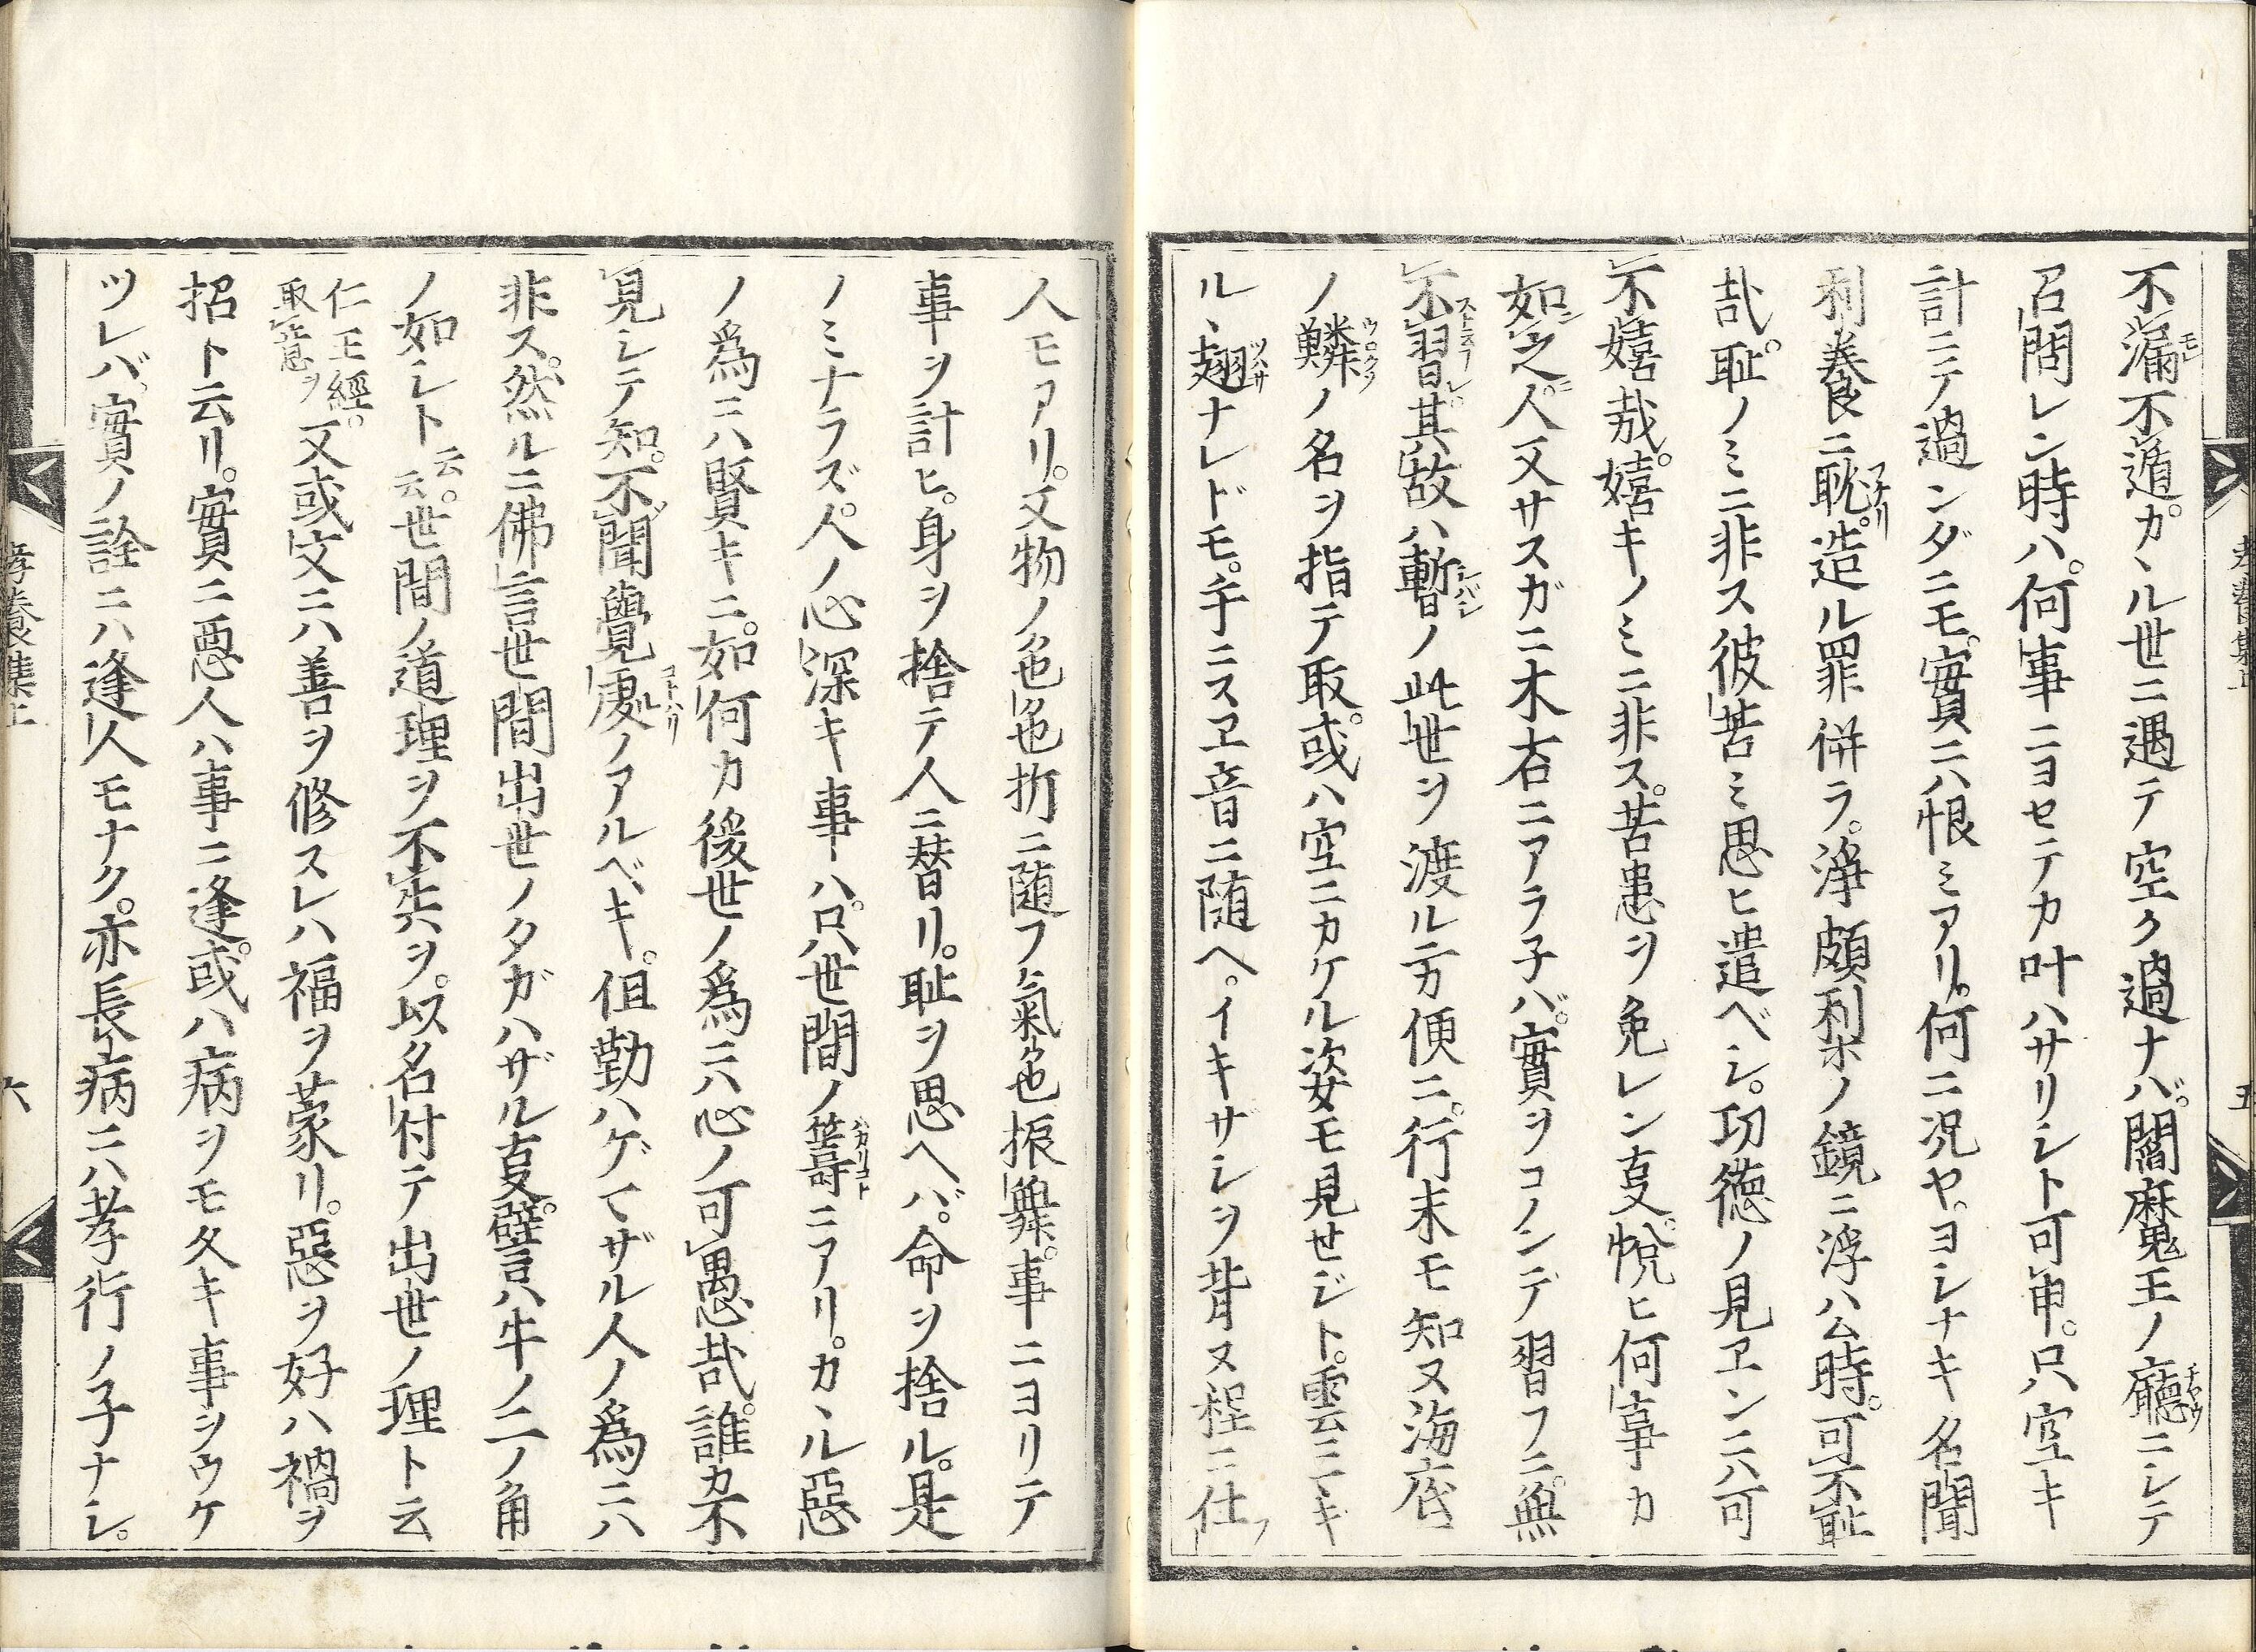 不漏不遁カヽル世ニ遇テ空ク過ナバ。閻魔王ノ廳ニシテ
召問レン時ハ。何事ニヨセテカ叶ハサリシト可申。只空キ
計ニテ過ンダニモ。實ニハ恨ミアリ。何ニ況ヤ。ヨシナキ名聞
利養ニ耽。造ル罪併ラ。淨頗利ホノ鏡ニ浮ハム時。可不耻
哉。耻ノミニ非ス彼苦ミ思ヒ遣ベシ。功徳ノ見エンニハ可
不嬉哉。嬉キノミニ非ス。苦患ヲ免レン叓。悅ヒ何事カ
如之。人又サスガニ木石ニアラ子バ。實ヲコノンデ習フニ。無
不習。其故ハ暫ノ此世ヲ渡ル方便ニ。行末モ知ヌ海底
ノ鱗ノ名ヲ指テ取。或ハ空ニカケル姿モ見せジト。雲ニキ
ルヽ翅ナレドモ。手ニスヱ音ニ随ヘ。イキザシヲ背ヌ程ニ仕
人モアリ。又物ノ色色折ニ随フ氣色振舞。事ニヨリテ
事ヲ計ヒ。身ヲ捨テ人ニ替リ。耻ヲ思ヘバ。命ヲ捨ル。是
ノミナラズ。人ノ心深キ事ハ。只世間ノ籌ニアリ。カヽル惡
ノ爲ニハ賢キニ。如何カ後世ノ爲ニハ心ノ可愚哉。誰カ不
見シテ知。不聞覺処ノアルベキ。但勤ハゲマザル人ノ爲ニハ
非ス。然ルニ佛言世間出世ノタガハザル叓。譬ハ牛ノ二ノ角
ノ如シト云云。世間ノ道理ヲ不失ヲ。以名付テ出世ノ理ト云
仁王經。取意ヲ 又或文ニハ善ヲ修スレハ福ヲ蒙リ。惡ヲ好ハ禍ヲ
招ト云リ。實ニ惡人ハ事ニ逢。或ハ病ヲモ久キ事ヲウケ
ツレバ。實ノ詮ニハ逢人モナク。亦長病ニハ孝行ノ子ナシ。
孝養集上
六